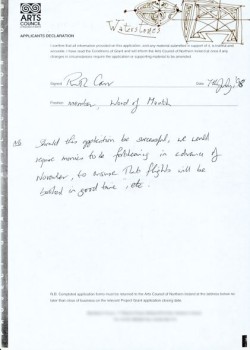 ARTS
COUNCIL
Waterstones
APPLICANTS DECLARATION
I confirm that all information provided in this application, and any material submitted in support of it, is truthful and
accurate. I have read the Conditions of Grant and will inform the Arts Council of Northern Ireland at once if any
changes in circumstances require the application or supporting material to be amended.
Signed Ruth Carr Date 7th July '98
Position member, Word of Mouth
NB Should this application be successful, we would
require monies to be forthcoming in advance of
November, to ensure that flights will be
booked in good time, etc.
N.B. Completed application forms must be returned to the Arts Council of Northern Ireland at the address below no
later than close of business on the relevant Project Grant application closing date.